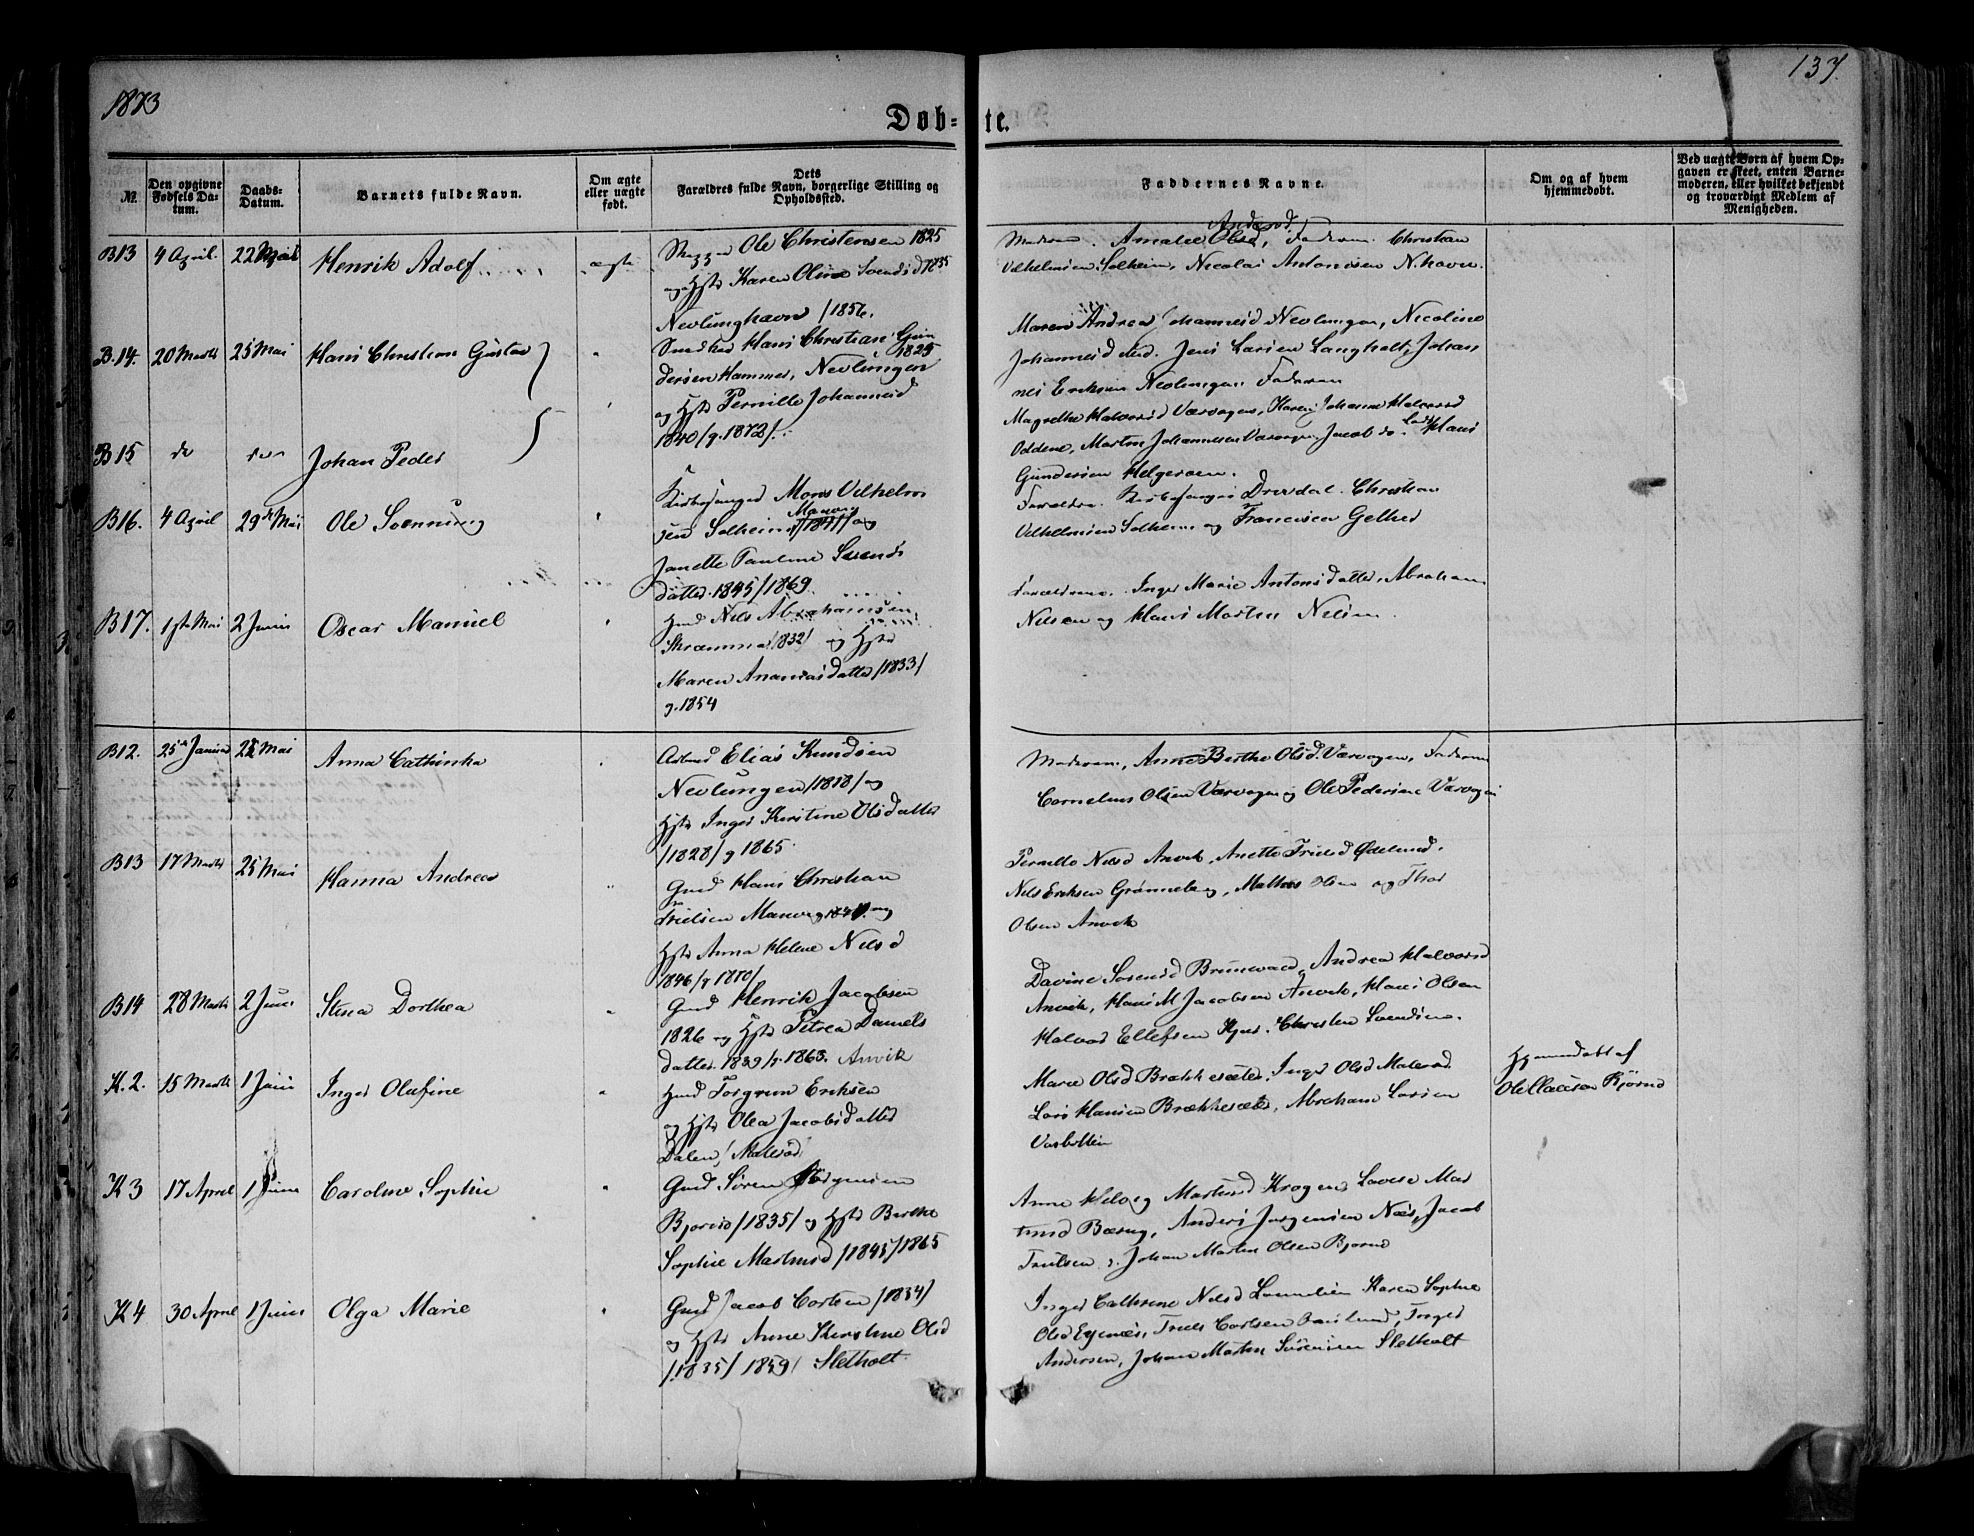 1873
137.
Døb-
te.
No.
Den opgivne Fødsels Datum.
Daabs-Datum.
Barnets fulde Navn.
Om ægte eller uægte født.
Dets Forældres fulde Navn, borgerlige Stilling og Opholdssted.
Faddernes Navne.
Om og af hvem hjemmedøbt.
Ved uægte Børn af hvem Opgaven er skeet, enten Barnemoderen, eller hvilket bekjendt og troværdigt Medlem af Menigheden.
B13 4 April 22 Mai Henrik Adolf ægte
Ole Christensen 1825
og Hst Karen Oline Svendsd 1835
Nevlunghavn /1856.
Moderen. Amalie Olsd, Faderen. Christian
Vilhelmsen Solheim, Nicolai Antonisen N.havn.
B.14. 20 Marts 25 Mai Hans Christian Gustav "
Snedker Hans Christian Gun
dersen Hammer, 1825 Nevlungen
og Hst Pernille Johannesd
1840/g. 1872/.
Maren Andrea Johannesd Nevlungen, Nicoline
Johannesd ibid. Jens Larsen Langholt, Johan
nes Eriksen Nevlungen Faderen
B15 do do Johan Peder "
Magrethe Halvorsd Værvagen, Karen Johanne Halvorsd
Oddene, Martin Johannesen Værvagen, Jacob do. Hans
Gundersen Helgeroen.
B16. 4 April 29de Mai Ole Svennung "
Kirkesanger Mons Vilhelm
sen Solheim Manvig /1841/ og
Janette Pauline Svends
datter 1845/1869.
Forældrene. Kirkesanger Drevdal. Christian
Vilhelmsen Solheim og
B17. 1ste Mai 2 Juni Oscar Manuel "
Hmd Nils Abrahamsen
1832/ og Hst
Maren datter /1833/
g. 1854
Forældrene. Inger Marie Antonsdatter, Abraham
Nilsen og Hans Martin Nilsen.
B12. 25 Januar 25 Mai Anna Cathinka "
Elias Knudsen
Nevlungen /1818/ og
Hst Inger Kirstine Olsdatter
/1828/ g 1865.
Moderen, Anne Berthe Olsd. Værvagen, Faderen
Cornelius Olsen Værvagen og Ole Pedersen Værvagen
B13 17 Marts 25 Mai Hanna Andrea "
Gmd Hans Christian
Trulsen Manvig og
Hst Anna Helene Nilsd
1846/g 1870/
Pernille Nilsd Anvik, Anette Trulsd Ødelund.
Nils Eriksen Grønneberg, Mathias Olsen og Thor
Olsen Anvik
B14 28 Marts 2 Juni Stina Dorthea "
Gmd Henrik Jacobsen
1826 og Hst Petrea Daniels
datter 1839/g. 1863. Anvik
Davine Sørensd Brunvald, Andrea Halvorsd
Anvik, Hans M Jacobsen Anvik, Hans Olsen
Halvor Ellefsen Christen Svendsen.
K.2. 15 Marts 1 Juni Inger Olufine "
Hmd Torgrim Eriksen
og Hst Olea Jacobsdatter
Dalen,
Marie Olsd Brækkesæter, Inger Olsd
Lars Hansen Brækkesæter, Abraham Larsen
Vasbotten
Hjemmedøbt af
Ole Bjørnø
K3 17 April 1 Juni Caroline Sophie "
Gmd Søren Jørgensen
Bjørnø /1835/ og Hst Berthe
Sophie Martinsd /1845/1865
Anne Helvig Martinsd Kragen, Lovise Mar
tinsd Bærug, Anders Jørgensen Næs, Jacob
Trulsen, Johan Martin Olsen Bjørnø
K4 30 April 1 Juni Olga Marie "
Gmd Jacob Carlsen /1834/
og Hst Anne Kirstine Olsd
/1835/1859/ Sletholt
Inger Cathrine Nilsd Karen Sophie
Olsd Egenæs, Truls Carlsen
Andersen, Johan Martin Sørensen Sletholt